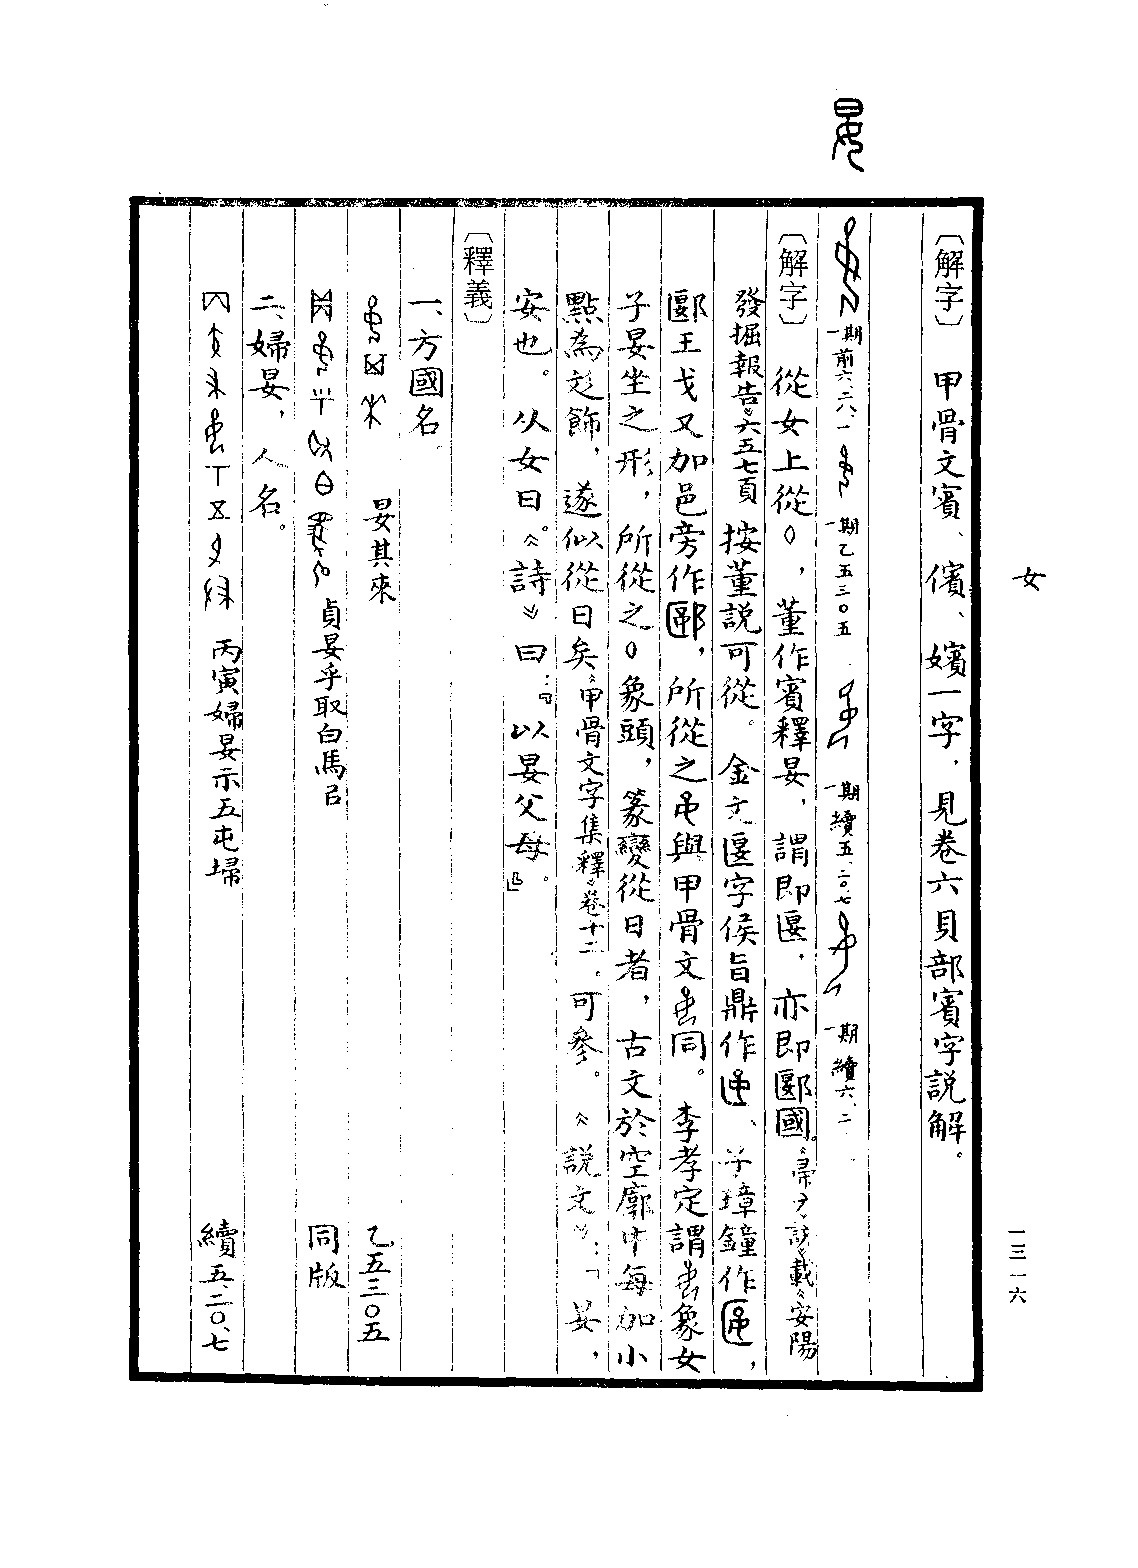 女
一三一六
〔解字〕甲骨文賓、儐、嬪一字，見卷六貝部賓字說解。
晏
一期前六.二八.一 一期乙五三〇五 一期續五.二〇.七 一期續六.二
〔解字〕從女上從，董作賓釋晏，謂即匽，亦即郾國。《帚矛說》載《安陽
發掘報告》六五七頁按董說可從。金文匽字侯旨鼎作、子璋鐘作，
郾王戈又加邑旁作，所從之與甲骨文同。李孝定謂象女
子晏坐之形，所從之象頭，篆變從日者，古文於空廓中每加小
點為文飾，遂似從日矣《甲骨文字集釋》卷十二，可參。《說文》：「晏，
安也。从女日。《詩》曰：『以晏父母。』」
〔釋義〕
一、方國名
晏其來 乙五三〇五
貞晏乎取白馬吕 同版
二、婦晏，人名。
丙寅婦晏示五屯埽 續五.二〇.七